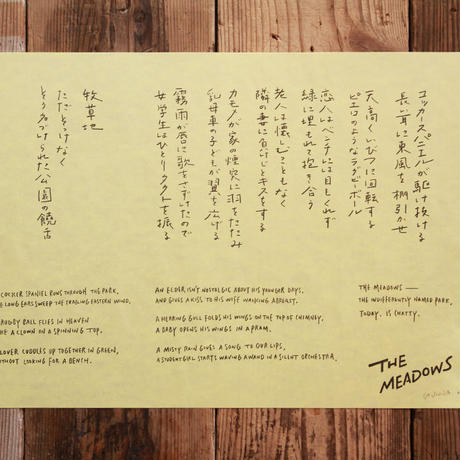 コッカースパニエルが駆け抜ける
長い耳に東風を棚引かせ
天高くいびつに回転する
ピエロのようなラグビーボール
恋人はベンチには目もくれず
緑に埋もれて抱き合う
老人は懐しむこともなく
隣の妻に負けじとキスをする
カモメが家の煙突に羽をたたみ
乳母車の子どもが翼を広げる
霧雨が唇に歌をさずけたので
女学生はひとりタクトを振る
牧草地
ただそっけなく
そう名づけられた公園の饒舌
COCKER SPANIEL RUNS THROUGH THE PARK,
LONG EARS SWEEP THE TRAILING EASTERN WIND.
RUGBY BALL FLIES IN HEAVEN
A CLOWN ON A SPINNING TOP.
LOVER CUDDLES UP TOGETHER IN GREEN,
WITHOUT LOOKING FOR A BENCH.
AN ELDER ISN'T NOSTALGIC ABOUT HIS YOUNGER DAYS,
AND GIVES A KISS TO HIS WIFE WALKING ABREAST.
A HERRING GULL FOLDS HIS WINGS ON THE TOP OF CHIMNEY,
A BABY OPENS HIS WINGS IN A PRAM.
A MISTY RAIN GIVES A SONG TO OUR LIPS,
A STUDENT GIRL STARTS WAVING A WAND IN A SILENT ORCHESTRA.
THE MEADOWS —
THE INDIFFERENTLY NAMED PARK,
TODAY, IS CHATTY.
THE
MEADOWS